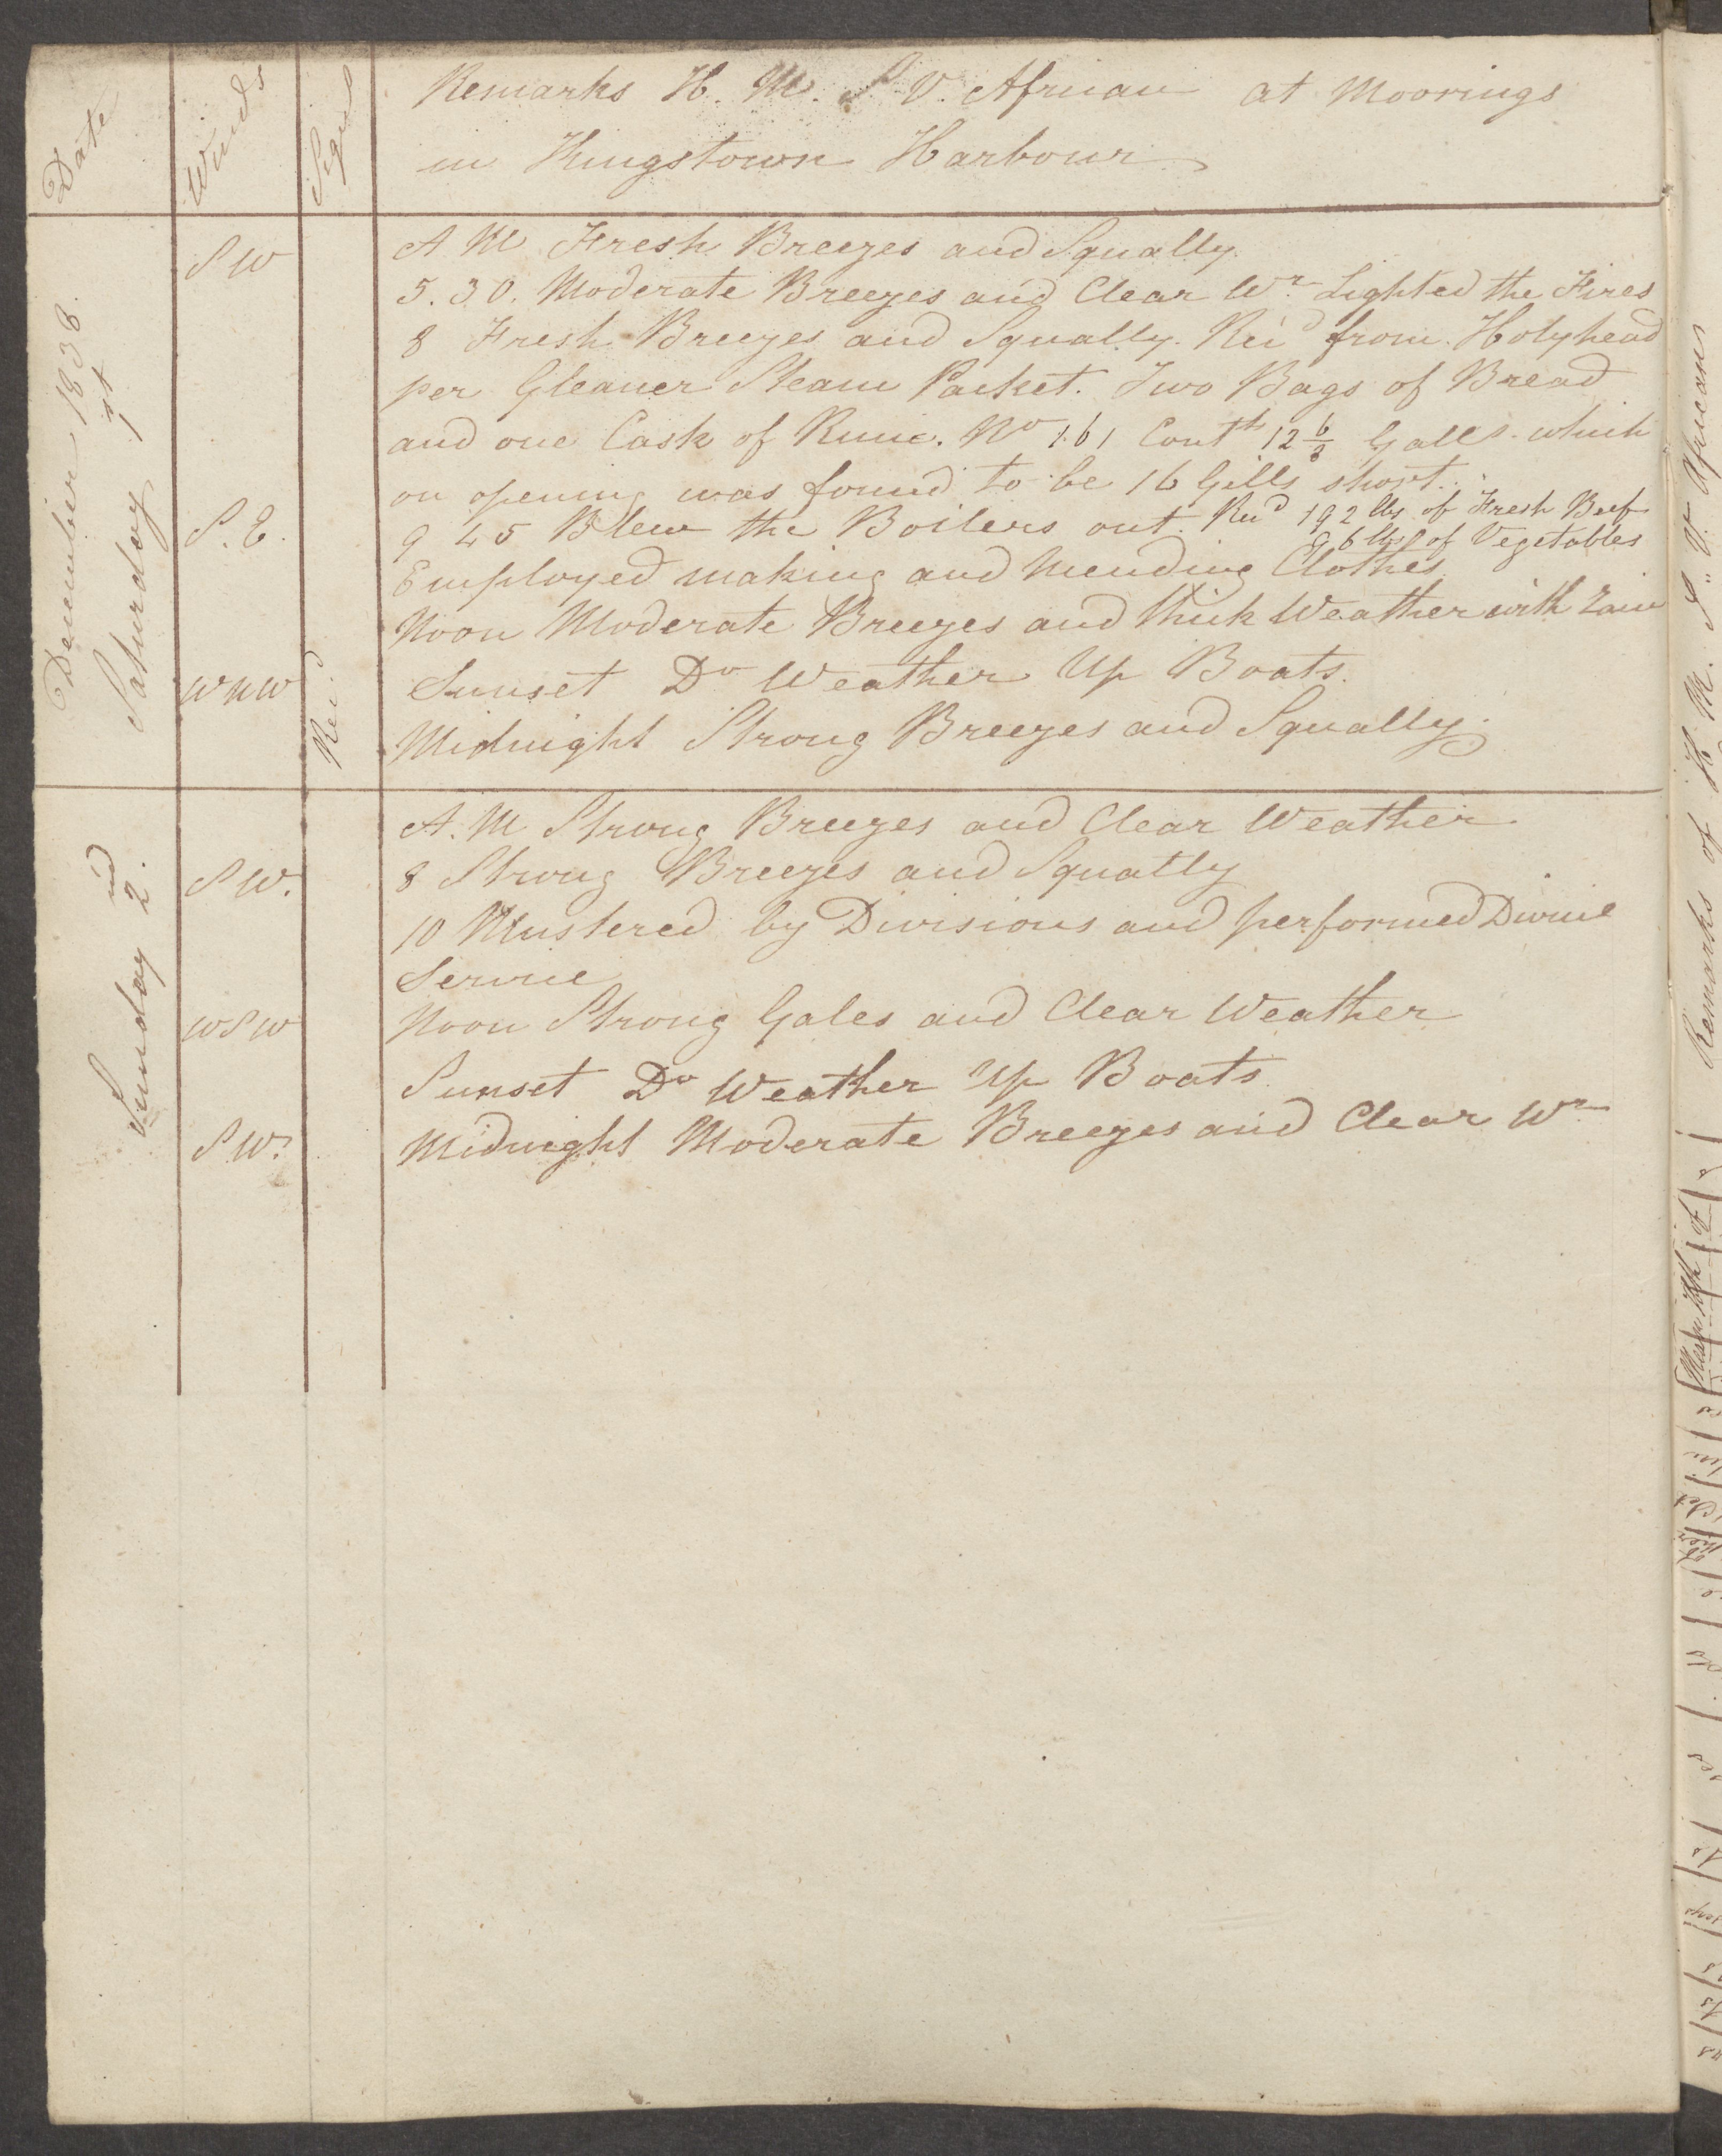 Date
Winds
Signl
Remarks H. M. S. V. African at Moorings
in Kingstown Harbour
December 1838.
Saturday 1st
S W
S. E.
W N W
Recd
A M Fresh Breezes and Squally.
5.30. Moderate Breezes and Clear Wr. Lighted the Fires
8 Fresh Breezes and Squally. Recd from Holyhead
per Gleaner Steam Packet. Two Bags of Bread
and one Cask of Rum. No 161 Conth 12 6/8 Galls. which
on opening was found to be 16 Gills short.
9 45 Blew the Boilers out. Recd 192 lbs of Fresh Beef
96 lbs of Vegetables
Employed making and Mending Clothes
Noon Moderate Breezes and thick Weather with rain
Sunset Do Weather Up Boats.
Midnight Strong Breezes and Squally.
Sunday 2nd.
S W.
W S W
S W.
A. M Strong Breezes and Clear Weather.
8 Strong Breezes and Squally
10 Mustered by Divisions and performed Divine
Service
Noon Strong Gales and Clear Weather
Sunset Do Weather Up Boats.
Midnight Moderate Breezes and Clear Wr
Remarks of H. M. S. V. African